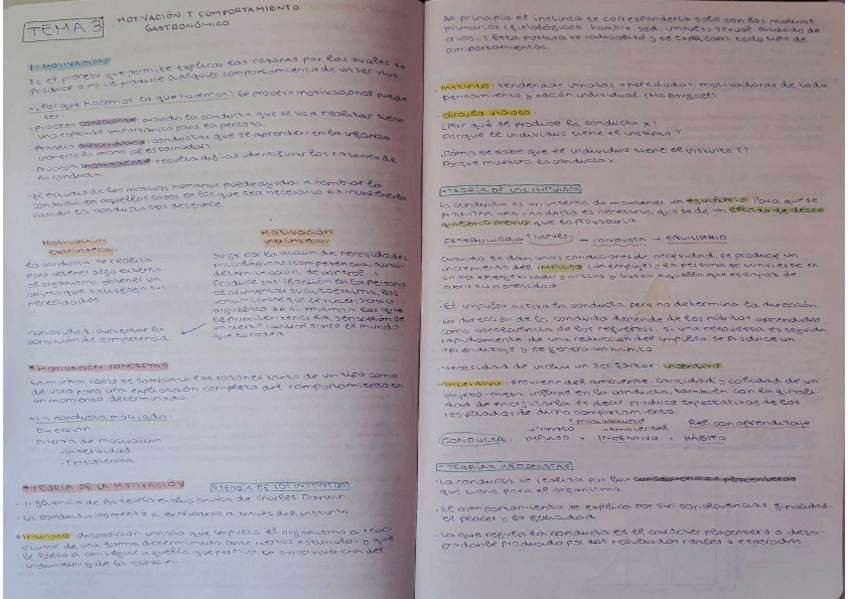 TEMA 3
MOTIVACIÓN Y COMPORTAMIENTO
GASTRONÓMICO
1. MOTIVACIÓN
Es el proceso que permite explicar las razones por las cuales se
produce o no se produce cualquier comportamiento de un ser vivo.
¿Por qué hacemos lo que hacemos? El proceso motivacional puede
ser
· Proceso consciente: cuando la conducta que se va a realizar tiene
una especial importancia para la persona
· Proceso automático: conductas que se aprenden en la infancia
(ponerse la mano al estornudar)
· Proceso inconsciente: resulta difícil identificar las razones de
la conducta
· El estudio de los motivos humanos puede ayudar a cambiar la
conducta en aquellos casos en los que sea necesario o a mantenerla
cuando la conducta sea deseable
Motivación
extrínseca:
La conducta se realiza
para obtener algo externo
al organismo, obtener un
objeto que satisfaga sus
necesidades
Motivación
intrínseca:
Surge por la acción de necesidades
psicológicas (competencia, auto-
determinación, de control...)
Produce satisfacción en la persona
al aumentar su autoestima, las
el mundo
que lo rodea
curiosidad, aumentar la
sensación de competencia
* MOTIVACIÓN CONCRETAS
En muchos casos se combinan las razones tanto de un tipo como
de otro para una explicación completa del comportamiento en
un momento determinado.
· La conducta motivada:
- Dirección
- Fuerza de motivación
- Intensidad
- Persistencia
* TEORÍA DE LA MOTIVACIÓN
* TEORÍA DE LOS INSTINTOS
· Influencia de la teoría evolucionista de Charles Darwin.
· La conducta comenzó a explicarse a través del instinto
· Instinto: disposición innata que impulsa el organismo a reac-
cionar de una forma determinada ante ciertos estímulos y que
le lleva a conseguir aquello que permite la supervivencia del
individuo y de la especie.
Al principio el instinto se correspondería solo con los motivos
primarios (fisiológicos, hambre, sed, impulso sexual, cuidado de
crías...) Esta postura se radicalizó y se explicaba todo tipo de
comportamientos.
· Instinto: tendencias innatas o heredadas, motivadoras de todo
pensamiento y acción individual (Mc Dougall)
· Círculo vicioso:
¿Por qué se produce la conducta X?
Porque el individuo tiene el instinto Y
¿Cómo se sabe que el individuo tiene el instinto Y?
Porque muestra la conducta X
* TEORÍA DE LOS IMPULSOS
La conducta es un intento de mantener un equilibrio. Para que se
produzca una conducta es necesario que se dé un estado de dese-
quilibrio previo que la provocaría.
DESEQUILIBRIO "IMPULSO" → CONDUCTA → EQUILIBRIO
Cuando se dan unas condiciones de necesidad, se produce un
incremento del IMPULSO (un empuje), la persona se convierte en
un ser energetizado y activo y busca aquello que es capaz de
necesidad
· El impulso activa la conducta pero no determina la dirección.
· La dirección de la conducta depende de los hábitos aprendidos
como consecuencia de los refuerzos, si una respuesta es seguida
rápidamente de una reducción del impulso se produce un
aprendizaje y se genera un hábito
· Necesidad de incluir un 3er factor: incentivo
· Incentivo: proviene del ambiente. Cantidad y calidad de un
objeto-meta influye en la conducta, también con la finali-
dad de energizarla, es decir, produce expectativas de los
resultados de dicho comportamiento.
- Innato
- Ambiental
Rel. con aprendizaje
CONDUCTA: IMPULSO + INCENTIVO + HÁBITO
* TEORÍAS HEDONISTAS
· La conducta se realiza por las consecuencias placenteras
que tiene para el organismo
· El comportamiento se explica por sus consecuencias, finalidad:
el placer y la felicidad
· Lo que regula la conducta es el carácter placentero o desa-
gradable producido por los resultados reales o esperados